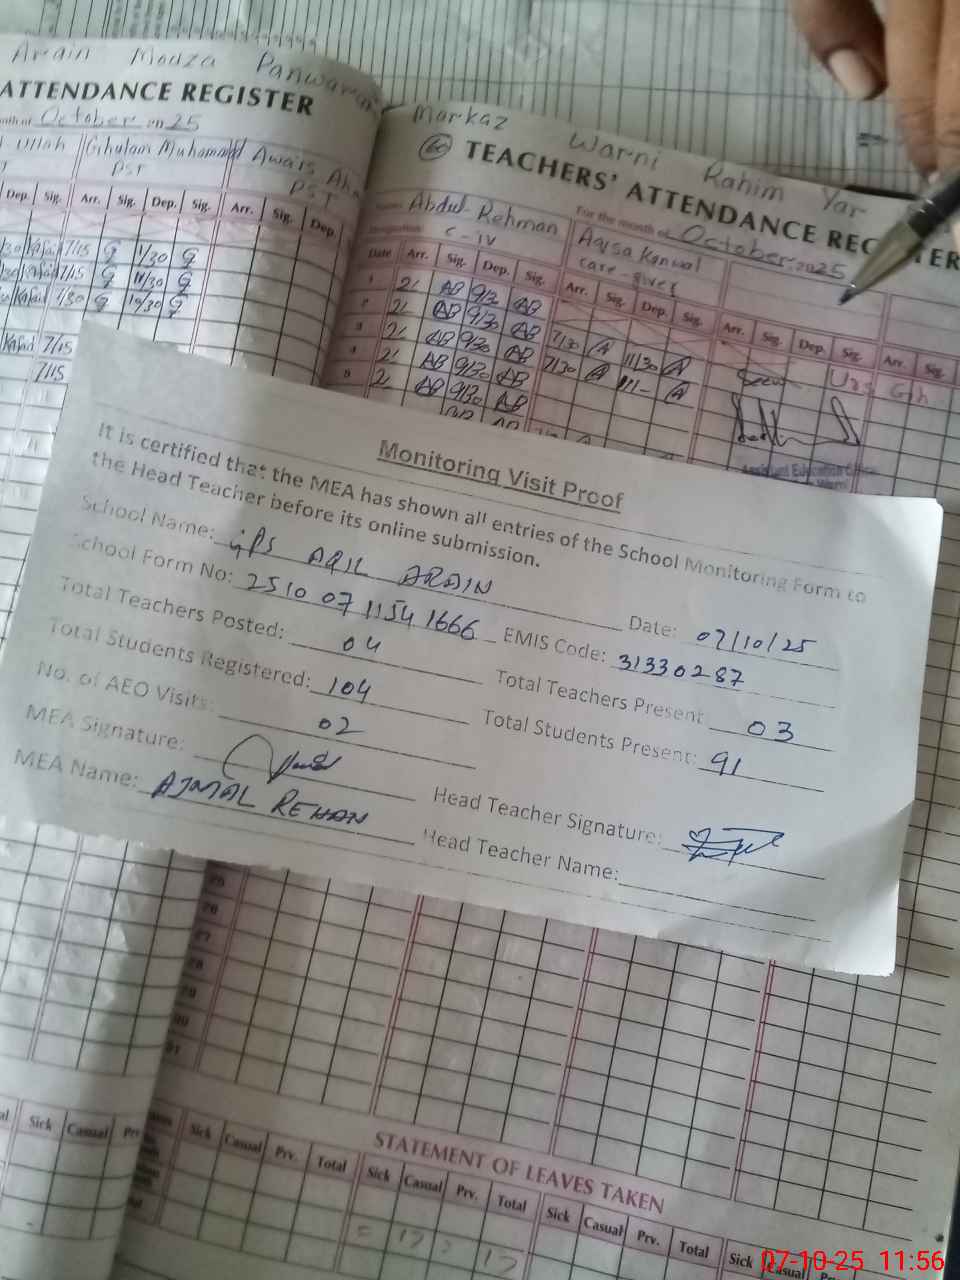 Arain Mouza Panwaran
ATTENDANCE REGISTER
October 25
Ullah Ghulam Muhammad Awais
PST PST
Dep. Sig. Arr. Sig. Dep. Sig. Arr. Sig. Dep.
7/15 11/30
7/15 11/30
7/30 10/30
7/15
7/15
Markaz Warni Rahim Yar
60 TEACHERS' ATTENDANCE REGISTER
For the month of October 2025
Name: Abdul Rehman Aqsa Kanwal
Designation C-IV care-giver
Date Arr. Sig. Dep. Sig. Arr. Sig. Dep. Sig. Arr. Sig. Dep. Sig. Arr. Sig.
1 2/ AB 9/30 AB
2 2/ AB 9/30 AB 7/30 A 11/30 A
3 2/ AB 9/30 AB 7/30 A 11/- A
4 2/ AB 9/30 AB
5 2/ AB 9/30 AB
Assistant Education
Monitoring Visit Proof
It is certified that the MEA has shown all entries of the School Monitoring Form to
the Head Teacher before its online submission.
School Name: GPS AQIL ARAIN Date: 07/10/25
School Form No: 2510 07 1154 1666 EMIS Code: 31330287
Total Teachers Posted: 04 Total Teachers Present: 03
Total Students Registered: 104 Total Students Present: 91
No. of AEO Visits: 02
MEA Signature: Head Teacher Signature:
MEA Name: AJMAL REHAN Head Teacher Name:
25
26
27
28
29
30
31
Sick Casual Prv.
STATEMENT OF LEAVES TAKEN
Sick Casual Prv. Total Sick Casual Prv. Total Sick Casual Prv. Total Sick Casual Prv.
07-10-25 11:56